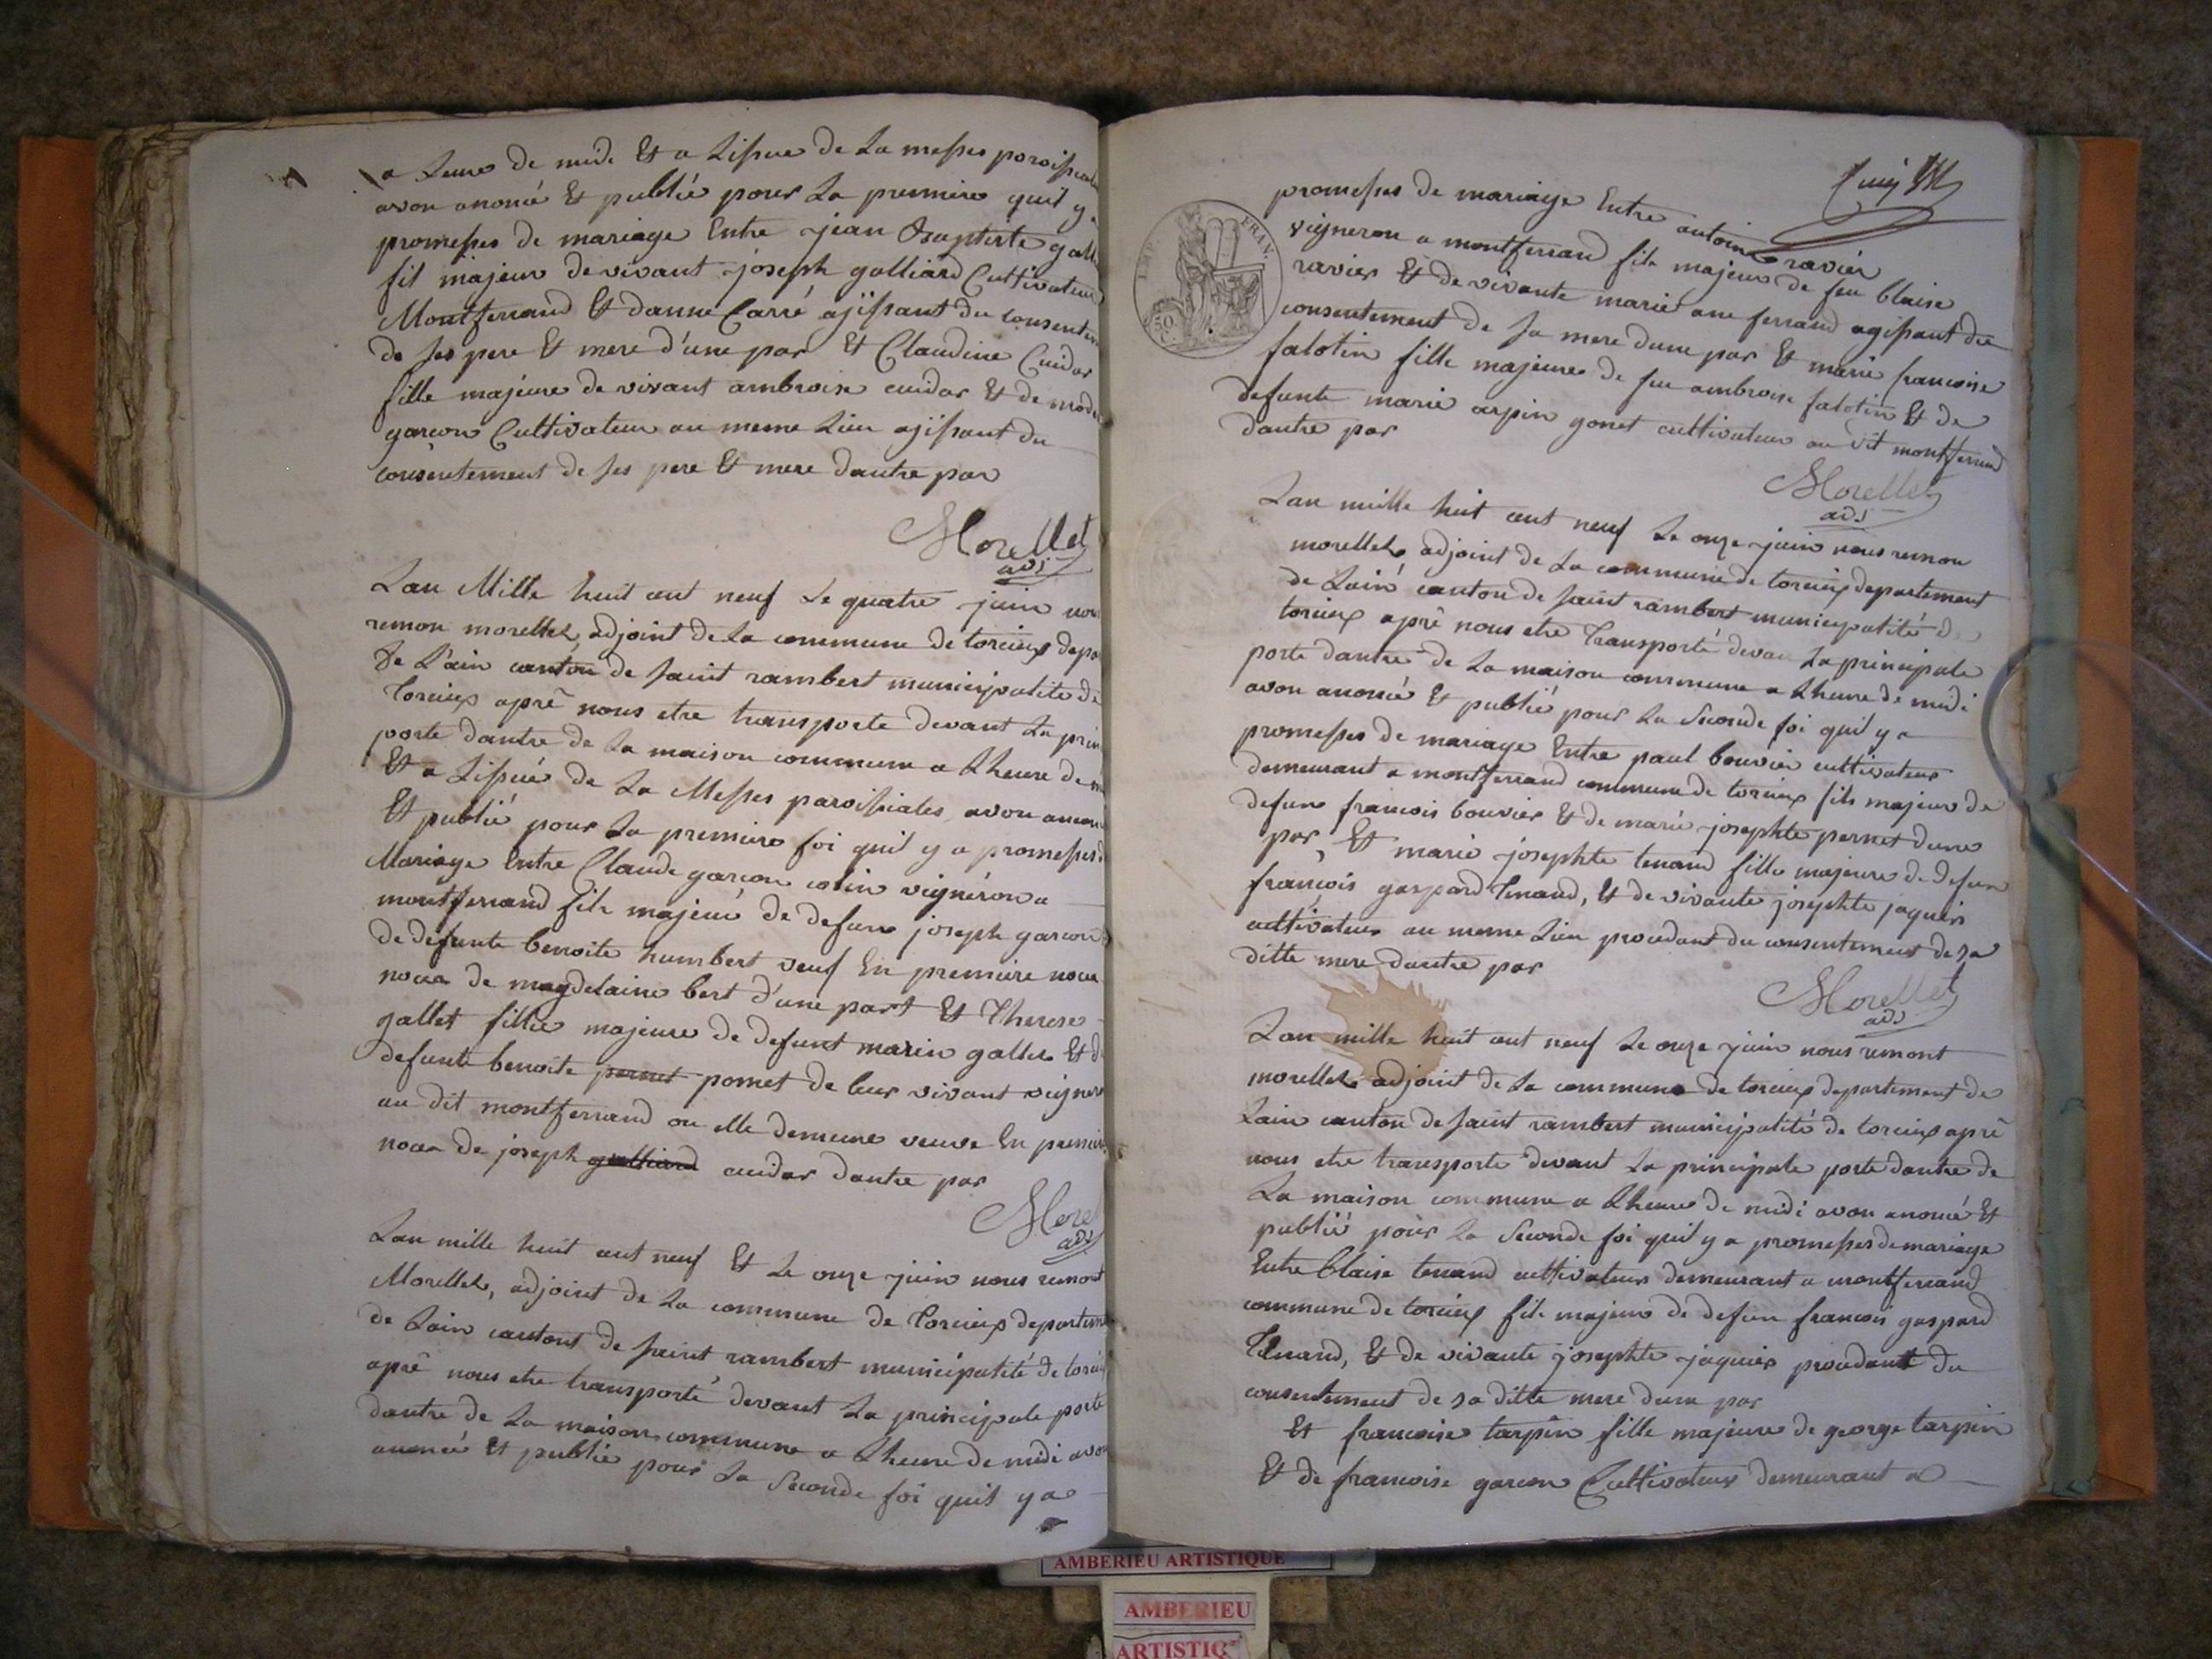 a Leure de midi Et a Lissue de La messes paroissiale
avon anoncé Et publiée pour La premiere quil y a
promesses de mariage Entre jean Baptiste gall
fil majeur de vivant joseph galliard Cultivateur
Montferrand Et danne Carré ajissant du consentem
de ses pere Et mere d'une par Et Claudine Cuidar
fille majeure de vivant ambroise cuidar Et de mode
garcon Cultivateur au meme Lieu ajissant du
consentement de ses pere Et mere dautre par
Morellet
adj
Lan Mille huit cent neuf Le quatre juin nou
remon morellet, adjoint de La commune de torcieu depa
de L'ain canton de saint rambert municipalite de
torcieu aprê nous etre transporte devant La prin
porte dantre de La maison commune a Lheure de m
Et a Lissuë de La Messes paroissiales, avon anonc
Et publié pour La premiere foi quil y a promesses d
Mariage Entre Claude garcon colin vignéron a
montferrand fils majeur de defun joseph garcon
de defunte benoite humbert veuf En premiere noce
noces de magdelaine bert d'une part Et Therese
gallet fille majeure de defunt marin gallet Et d
defunte benoite pernet pomet de leur vivant vigner
au dit montferrand ou elle demeure veuve En premier
noces de joseph galliard cuidar dautre par
Morel
adj
Lan mille huit cent neuf Et Le onze juin nous remont
Morellet, adjoint de La commune de Torcieu departeme
de Lain cantont de saint rambert municipalité de torcieu
aprê nous etre transporté devant La principale porte
dantre de La maison commune a Lheure de midi avon
anoncé Et publié pour La Seconde foi quil y a
promesses de mariage Entre antoine ravier
vigneron a montferrand fils majeur de feu blaise
ravier Et de vivante marie anne ferrand agissant du
consentement de sa mere dune par Et marie francoise
falotin fille majeure de feu ambroise falotin Et de
defunte marie arpin gonet cultivateur au dit montferrand
dautre par
IMP. FRAN.
50 C.
Morellet
adj
Lan mille huit cent neuf Le onze juin nous remon
morellet, adjoint de La commune de torcieu departement
de Lain canton de saint rambert municipalité d
torcieu aprê nous etre Transporté devan La principale
porte dantre de La maison commune a Lheure de midi
avon anoncé Et publié pour La Seconde foi quil y a
promesses de mariage Entre paul bouvier cultivateur
demeurant a montferrand commune de torcieu fils majeur de
defun francois bouvier Et de marie josephte pernet dune
par, Et marie josephte tenand fille majeure de defun
françois gaspard Tenand, Et de vivante josephte jaquier
cultivateur au meme Lieu procedant du consentement de sa
ditte mere dautre par
Morellet
adj
Lan mille huit cent neuf Le onze juin nous remont
morellet adjoint de La commune de torcieu departement de
Lain canton de saint rambert municipalité de torcieu aprê
nous etre transporte devant La principale porte dantre de
La maison commune a Lheure de midi avon anoncé Et
publié pour La Seconde foi quil y a promesses de mariage
Entre blaise tenand cultivateur demeurant a montferrand
commune de torcieu fils majeur de defun francois gaspard
Tenand, Et de vivante josephte jaquier procedant du
consentement de sa ditte mere dune par
Et francoise tarpin fille majeure de george tarpin
Et de francoise garcon Cultivateur demeurant a
AMBERIEU ARTISTIQUE
AMBERIEU
ARTISTIQ